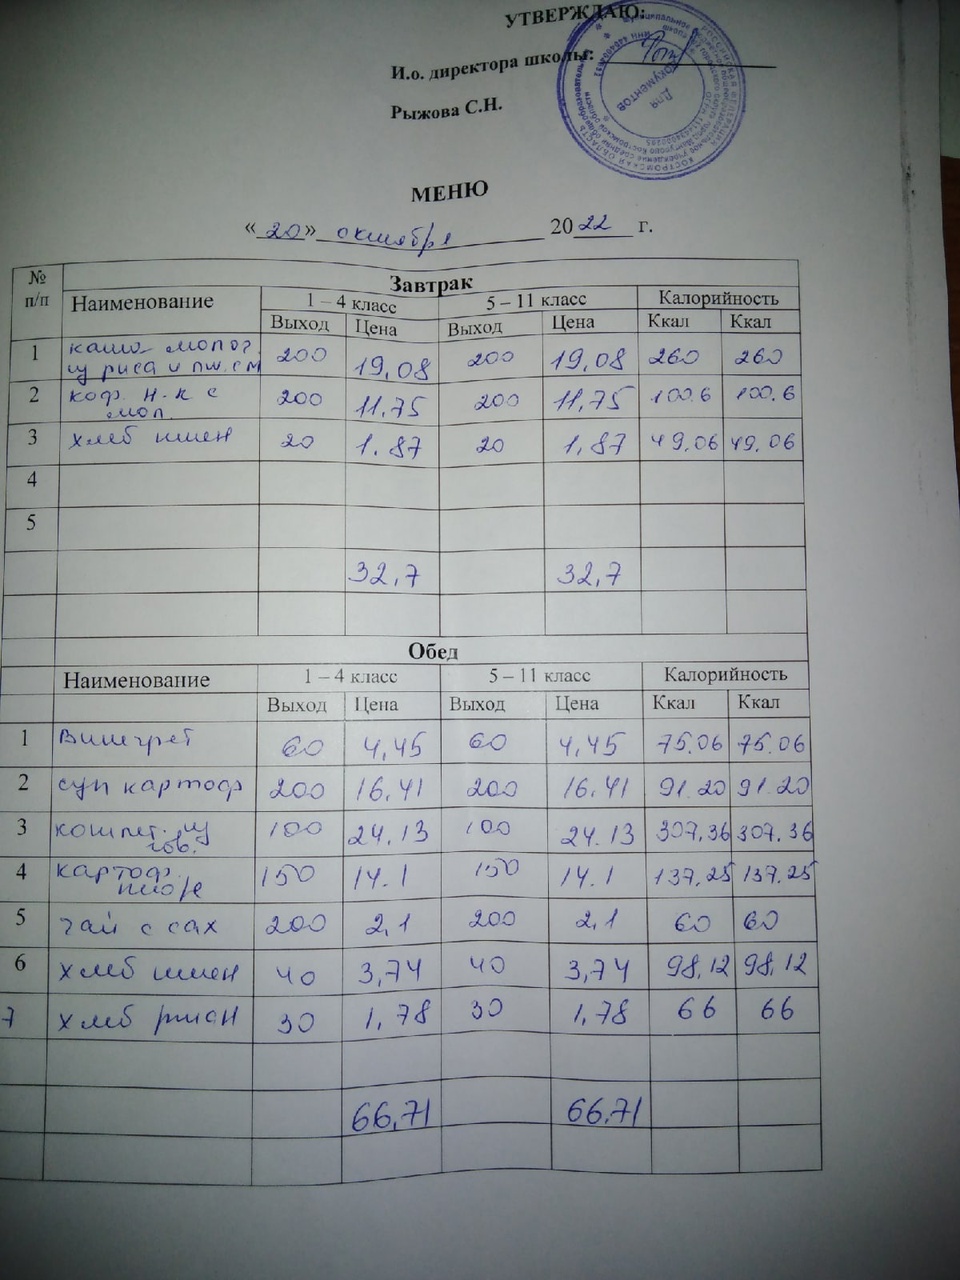 УТВЕРЖДАЮ:
И.о. директора школы:
Рыжова С.Н.
Для документов
МЕНЮ
«20» октября 2022 г.
№ п/п
Завтрак
Наименование 1 – 4 класс 5 – 11 класс Калорийность
Выход Цена Выход Цена Ккал Ккал
1 каша молоч. 200 19,08 200 19,08 260 260
из риса и
2 коф. н-к с 200 11,75 200 11,75 100.6 100.6
мол.
3 хлеб пшен 20 1.87 20 1,87 49,06 49,06
4
5
32,7 32,7
Обед
Наименование 1 – 4 класс 5 – 11 класс Калорийность
Выход Цена Выход Цена Ккал Ккал
1 Винегрет 60 4,45 60 4,45 75.06 75.06
2 суп картоф 200 16,41 200 16,41 91.20 91.20
3 котлет. из 100 24,13 100 24.13 307,36 307,36
гов.
4 картоф. 150 14.1 150 14.1 137,25 137,25
пюре
5 чай с сах 200 2,1 200 2,1 60 60
6 хлеб пшен 40 3,74 40 3,74 98,12 98,12
7 хлеб ржан 30 1,78 30 1,78 66 66
66,71 66,71